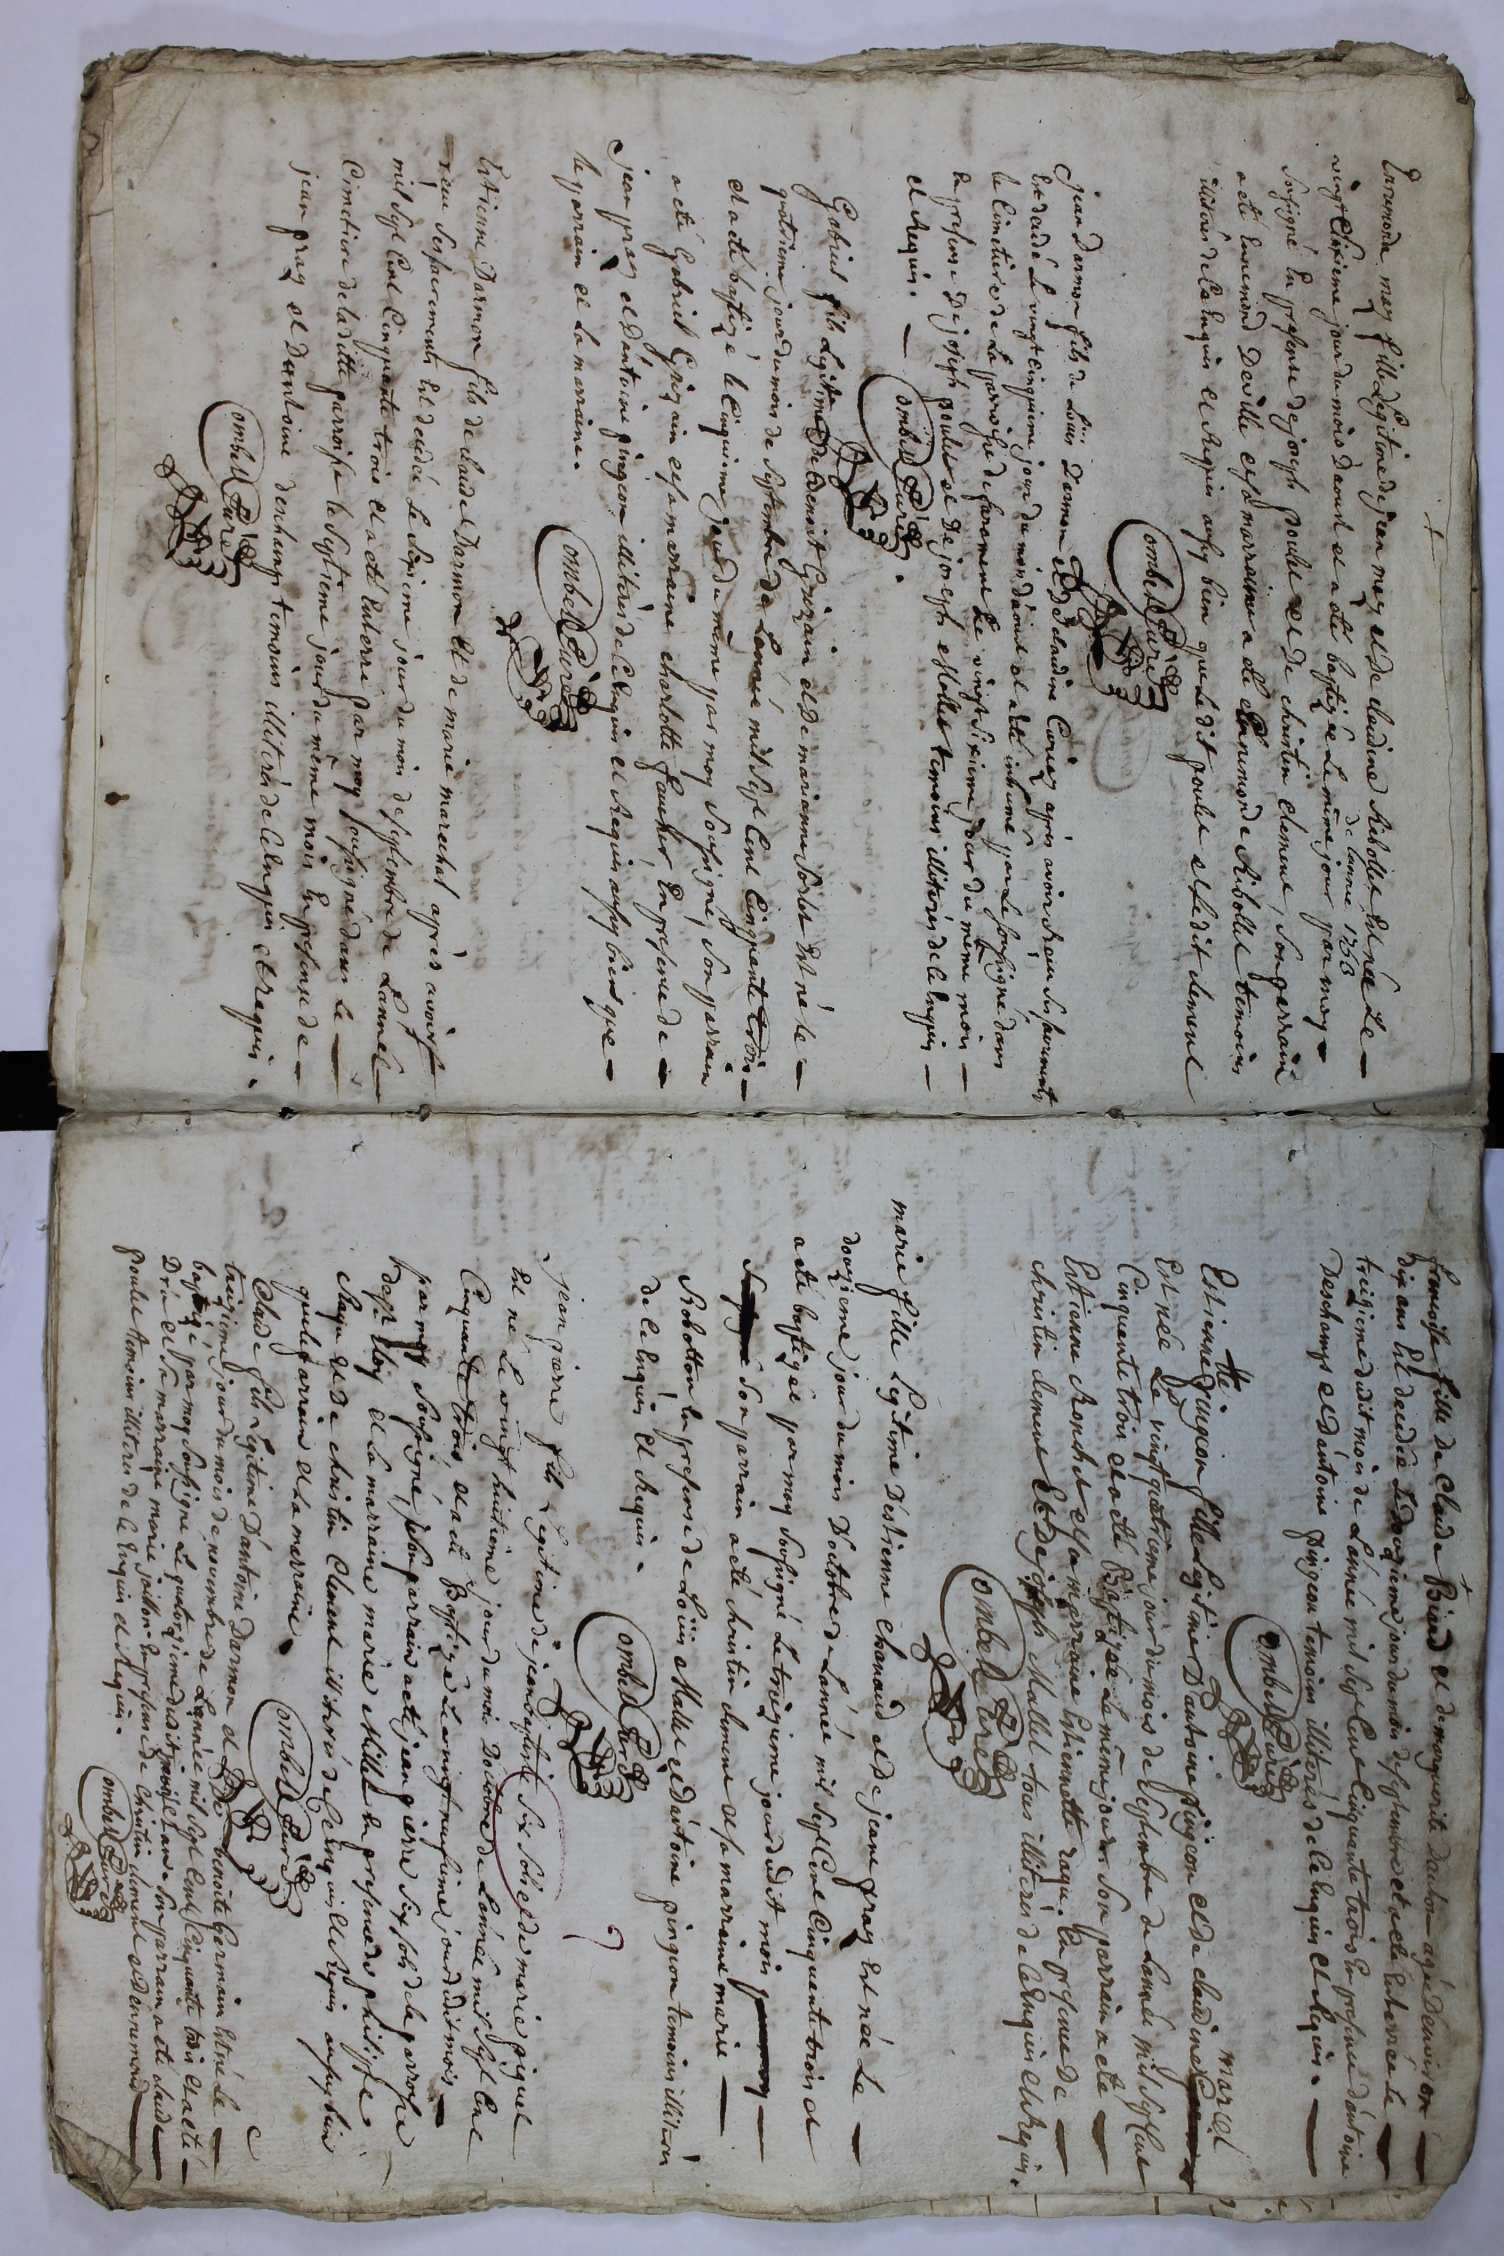 Ennimonde mey fille Legitime de jean mey et de claudine Ribollet Est née Le
de lannée 1753
vingt sixieme jour du mois daoust et a eté baptizée Le même jour par moy
soussigné En presence de joseph poulet et de christin clement, son parrain
a eté Ennemond Deville et sa marraine a eté Ennimonde Ribollet temoins
illiterés de Enquis et Requis aussy bien que Le dit poulet et Le dit clement
ombel Curé
jean Darmon fils de Loüis Darmon et De claudine Curiez apres avoir Reçu ses sacrements
Est decedé Le vingt cinquieme jour du mois d'aoust et a eté inhumé par Le soussigné dans
le cimetiere de La parroisse de Le vingt sixieme jour du même mois
En presence De joseph poulet et De joseph Mallet temoins illiterés de ce Enquis
et Requis.
ombel Curé
Gabriel fils Legitime De Benoit Grizain et De marianne Est né le
quatrieme jour du mois de septembre de Lannée mil sept Cent Cinquante trois
et a eté baptizé le Cinquieme jour du même par moy soussigné, son parrain
a eté Gabriel Grizain et sa marraine charlotte En presence de
jean praz et D'antoine pingeon illiterés de ce Enquis et Requis aussy bien que
le parrain et la marraine.
ombel Curé
Estienne Darmon fils de claude Darmon et de marie marechal apres avoir
reçu ses sacrements Est decedé Le sixieme jour du mois de septembre de Lannée
mil sept Cent Cinquante trois et a eté Enterré par moy soussigné dans Le
Cimetiere de la ditte parroisse le septieme jour du même mois En presence de
jean praz et D'antoine deschamps temoins illiterés de ce Enquis et requis.
ombel Curé
françoise fille de Claude Biard et de marguerite agée D'environ
dix ans Est decedée Le douzieme jour du mois de septembre et a eté Enterrée le
treizieme dudit mois de Lannée mil sept Cent Cinquante trois En presence d'antoine
Deschamps et d'antoine pingeon temoins illiterés de ce Enquis et Requis.
ombel Curé
tte
Estienne pingeon fille Legitime D'antoine pingeon et de claudine marcel
Est née Le vingt quatrieme jour du mois de septembre de Lannée mil sept Cent
Cinquante trois et a eté Baptizée Le même jour son parrain a eté
Estienne Ronchet et sa marraine Estiennette raqu. En presence De
christin clement Et De joseph Mallet tous illiterés de ce Enquis et Requis.
ombel Curé
marie fille Legitime D'estienne chanaud et de jeane praz Est née Le
douzieme jour du mois D'octobre de Lannée mil sept Cent Cinquante trois et
a eté baptizée par moy soussigné Le treizieme jour dudit mois
son parrain a eté christin clement et sa marraine marie
Robotton En presence de Loüis Mallet et d'antoine pingeon temoins illiterés
de ce Enquis et Requis.
ombel Curé
jean pierre fils Legitime de jean baptiste Six Solz et de marie piquet
Est né Le vingt huitieme jour du mois D'octobre de Lannée mil sept Cent
Cinquante trois et a eté Baptizé Le vingt neufvieme jour dudit mois
par moy soussigné, son parrain a eté jean pierre Six solz de la parroisse
et sa marraine marie Millet En presence de philippe
et de christin Clement illiterés de ce Enquis et Requis aussy bien
que le parrain et la marraine.
ombel Curé
Claude fils Legitime D'antoine Darmon et De benoite Germain Est né Le
treizieme jour du mois de novembre de Lannée mil sept Cent Cinquante trois et a eté
baptizé par moy soussigné Le quatorzieme dudit son parrain a eté claude
Dré et sa marraine marie jaillon En presence de christin clement et d'ennemond
poulet temoins illiterés de ce Enquis et Requis.
ombel Curé